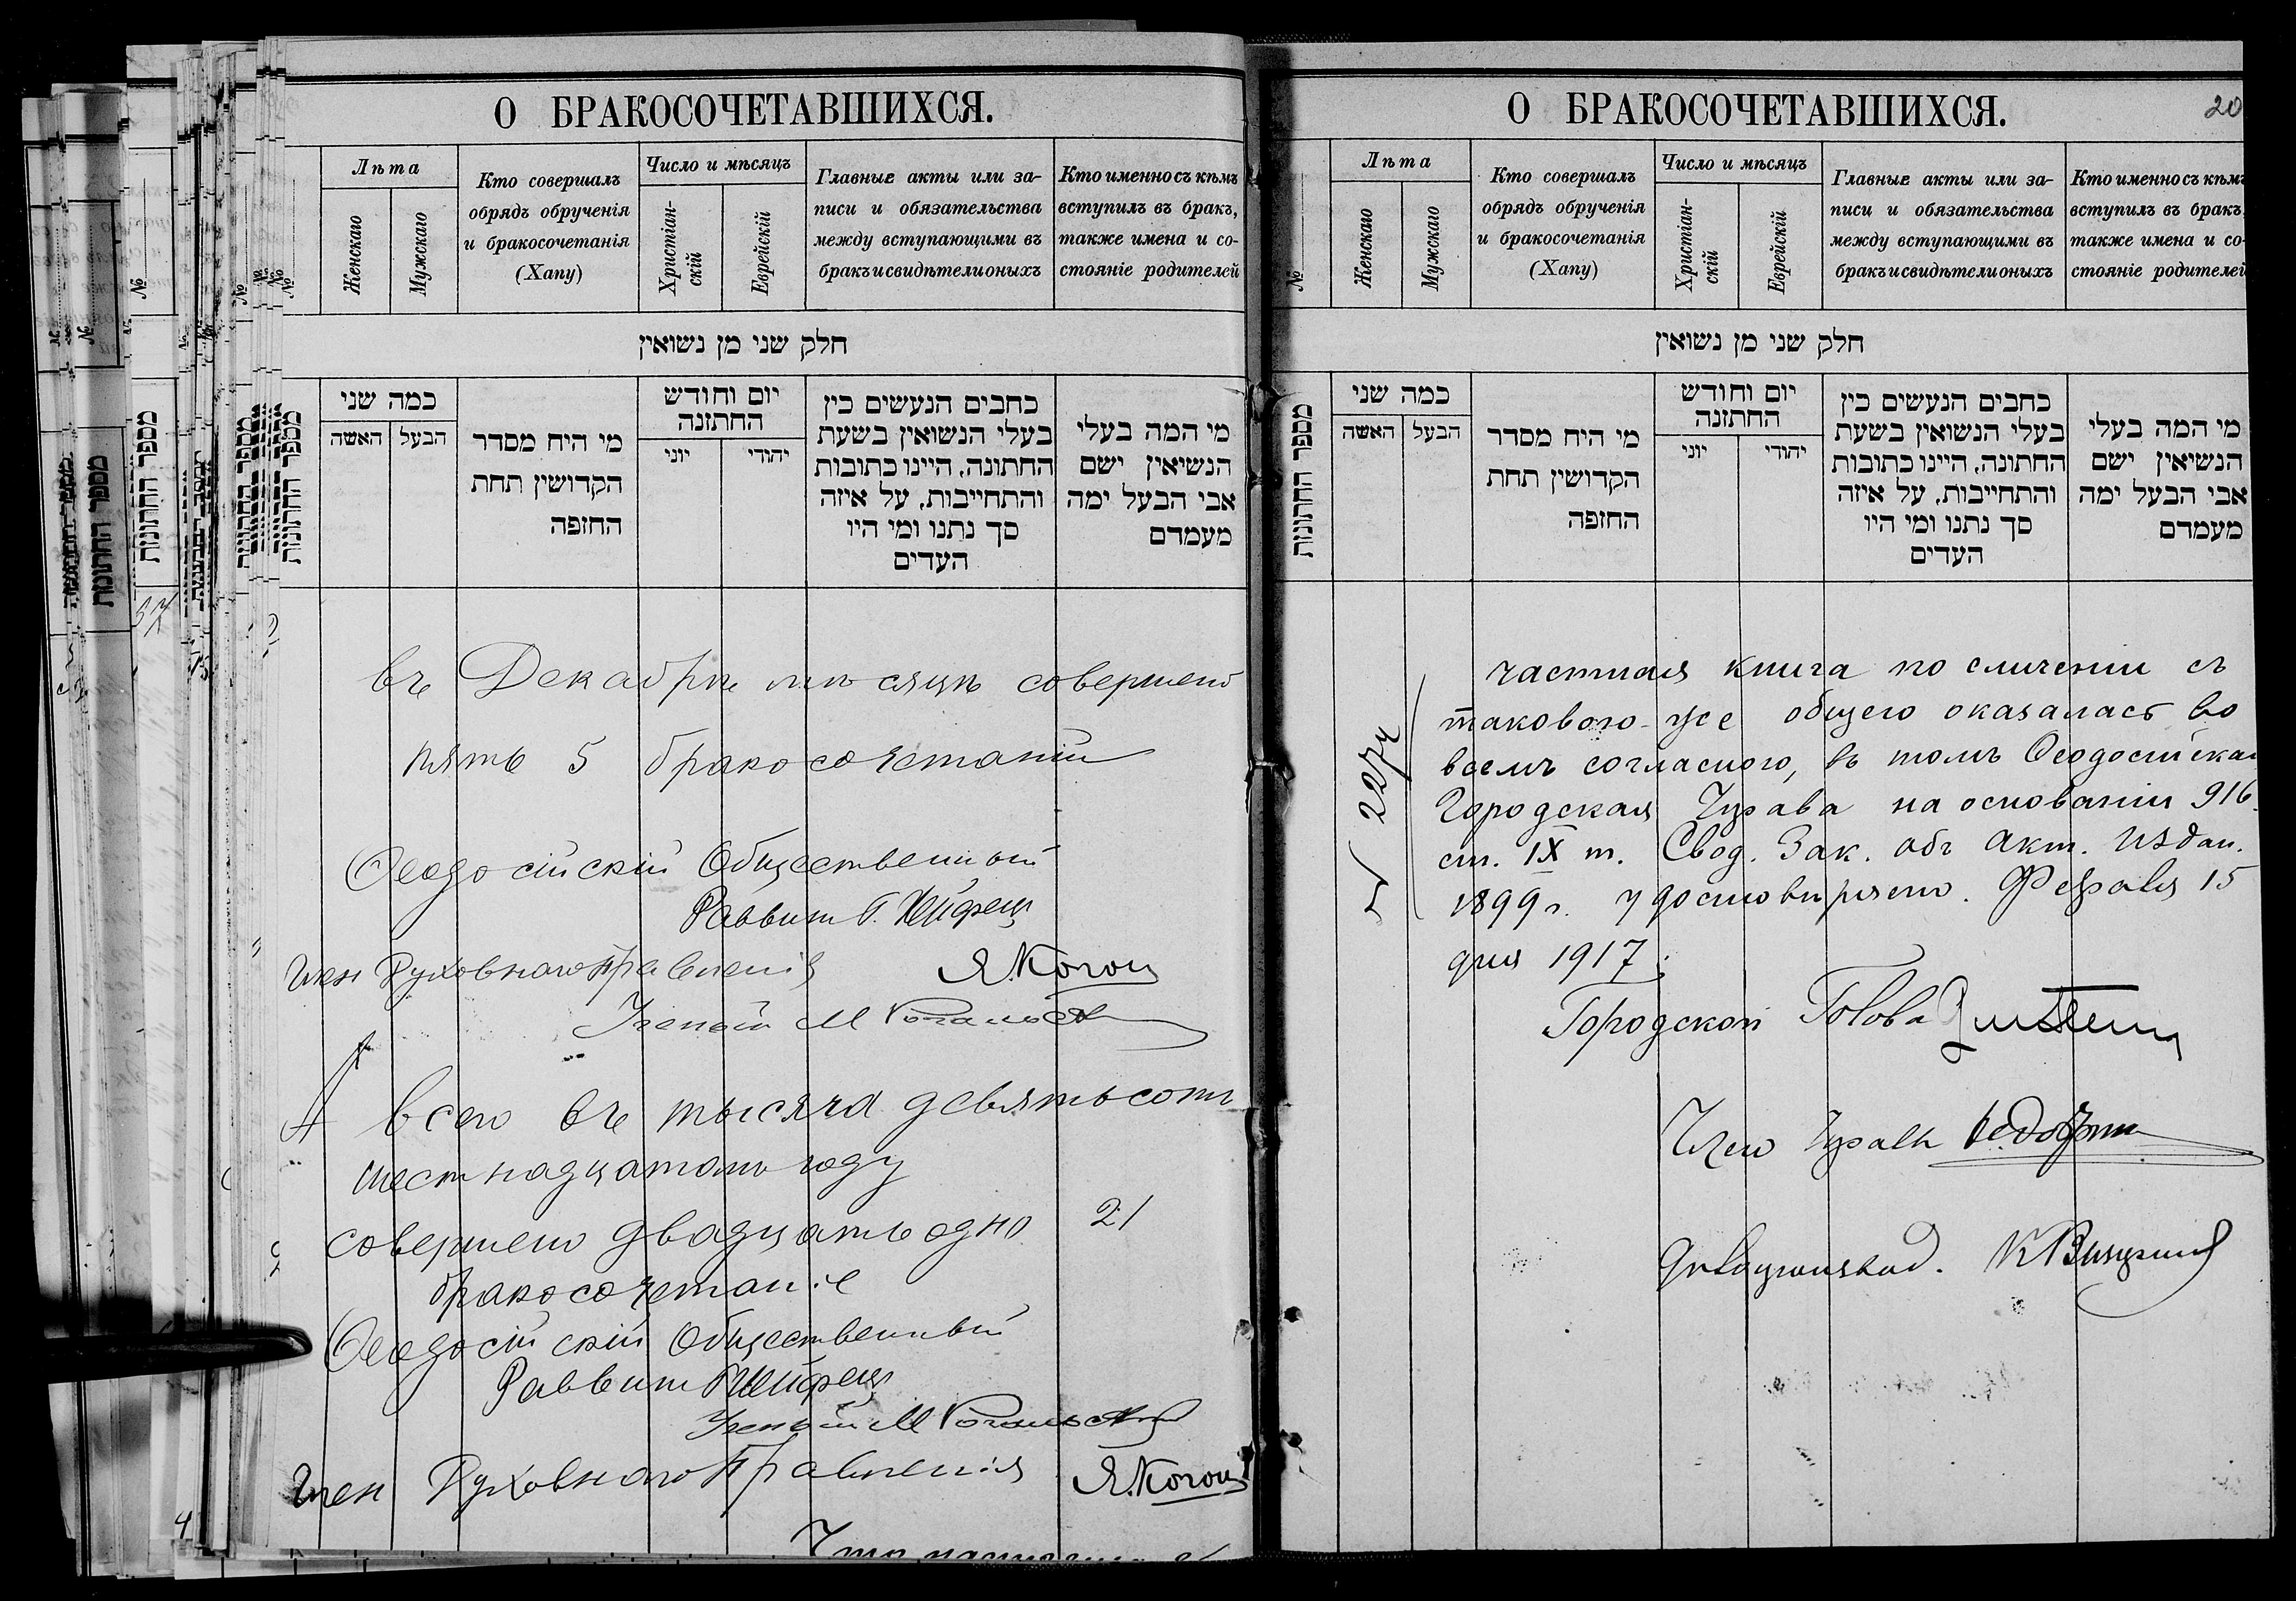 О БРАКОСОЧЕТАВШИХСЯ.
№
Лѣта
Женскаго
Мужскаго
Кто совершалъ
обрядъ обрученія
и бракосочетанія
(Хапу)
Число и мѣсяцъ
Христіан-
скій
Еврейскій
Главные акты или за-
писи и обязательства
между вступающими въ
бракъ и свидѣтели оныхъ
Кто именно съ кѣмъ
вступилъ въ бракъ,
также имена и со-
стояніе родителей
חלק שני מן נשואין
מספר החתונות
כמה שני
האשה
הבעל
מי היח מסדר
הקדושין תחת
החזפה
יום וחודש
החתזנה
יוני
יהודי
כחבים הנעשים כין
בעלי הנשואין בשעת
החתונה, היינו כתובות
והתחייבות, על איזה
סך נתנו ומי היו
העדים
מי המה בעלי
הנשיאין ישם
אבי הבעל ימה
מעמדם
въ Декабрѣ мѣсяцѣ совершено
пять 5 бракосочетаніи
Ѳеодосійскій Общественный
Раввинъ
Член Духовнаго Правленія Я. Коген
Ученый М
всего въ тысяча девятьсотъ
шестнадцатомъ году
совершено двадцать одно 21
бракосочетаніе
Ѳеодосійскій Общественный
Раввинъ
Ученый М
Член Духовнаго Правленія Я. Коген
О БРАКОСОЧЕТАВШИХСЯ.
20
№
Лѣта
Женскаго
Мужскаго
Кто совершалъ
обрядъ обрученія
и бракосочетанія
(Хапу)
Число и мѣсяцъ
Христіан-
скій
Еврейскій
Главные акты или за-
писи и обязательства
между вступающими въ
бракъ и свидѣтели оныхъ
Кто именно съ кѣмъ
вступилъ въ бракъ,
также имена и со-
стояніе родителей
חלק שני מן נשואין
מספר החתונות
כמה שני
האשה
הבעל
מי היח מסדר
הקדושין תחת
החזפה
יום וחודש
החתזנה
יוני
יהודי
כחבים הנעשים כין
בעלי הנשואין בשעת
החתונה, היינו כתובות
והתחייבות, על איזה
סך נתנו ומי היו
העדים
מי המה בעלי
הנשיאין ישם
אבי הבעל ימה
מעמדם
частная книга по сличеніи съ
таковою-же общею оказалась во
всемъ согласною, въ томъ Ѳеодосійская
Городская Управа на основаніи 916
ст. IX т. Свод. Зак. объ акт. издан.
1899 г. удостовѣряетъ. Февраля 15
дня 1917 г.
Городской Голова
Членъ Управы
Дѣлопроизвод.